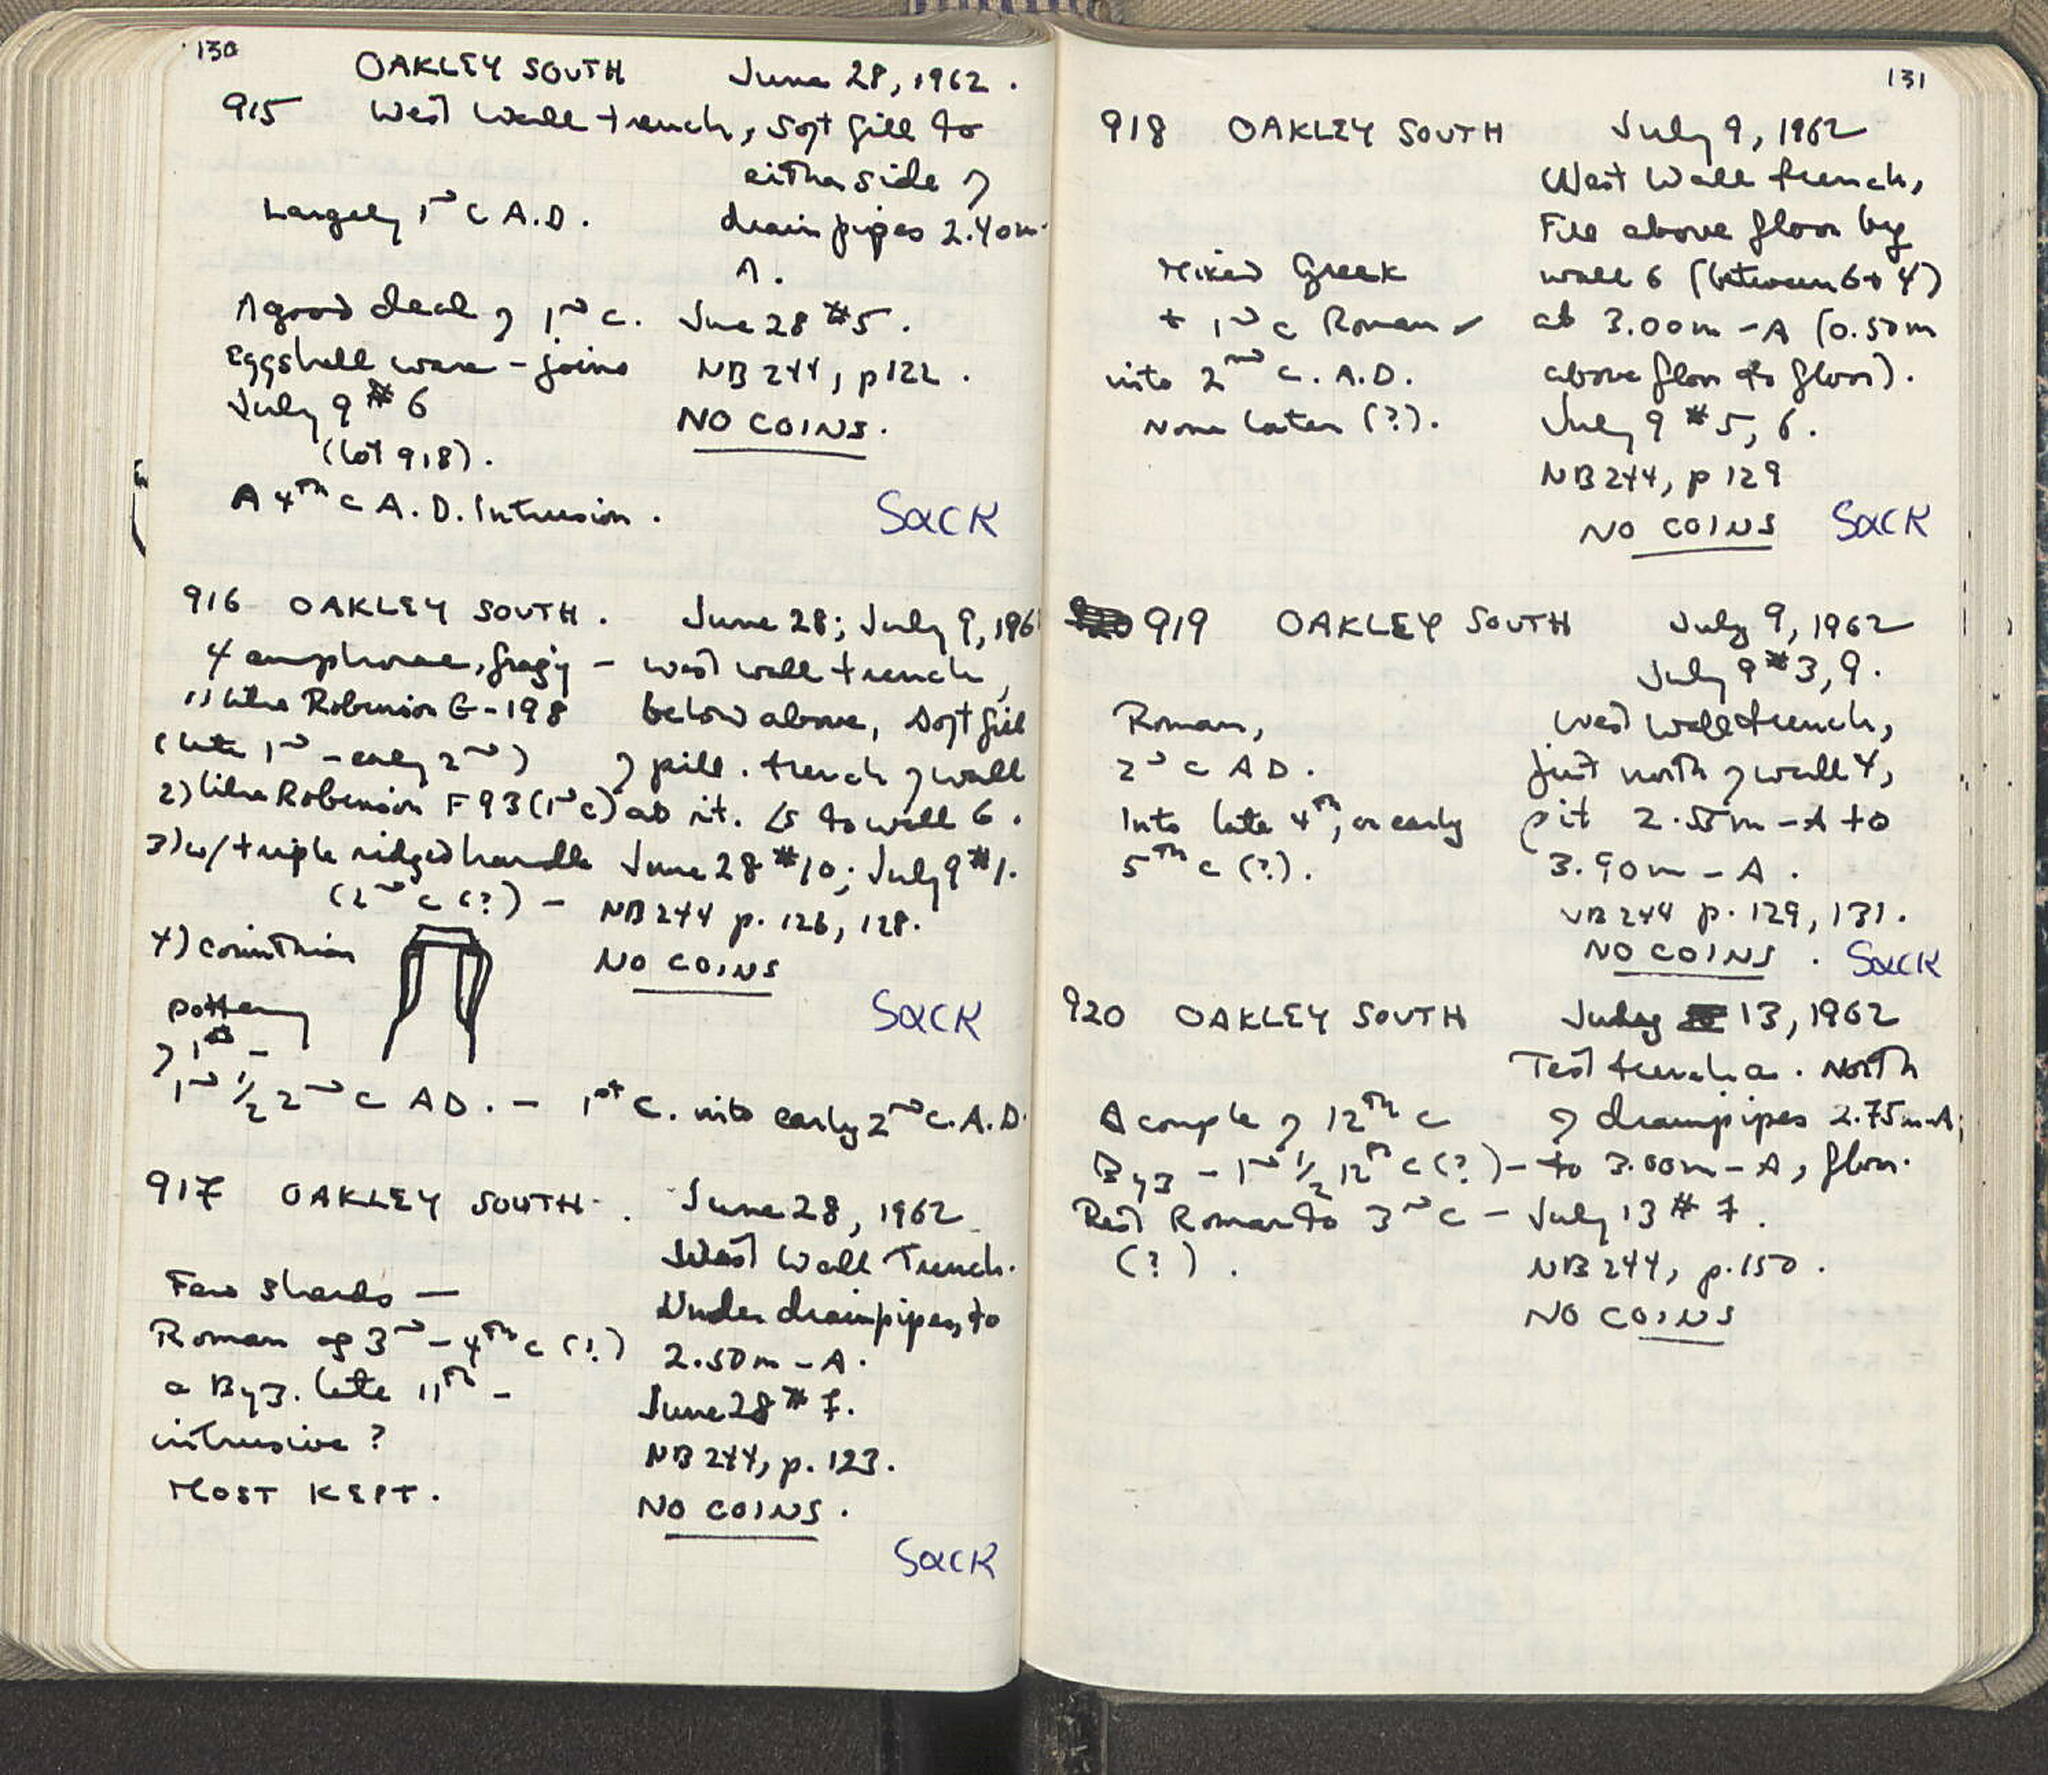 130
OAKLEY SOUTH June 28, 1962.
915 West Wall trench, soft fill to
either side of
Largely 1st c A.D. drain pipes 2.40m-
A.
A good deal of 1st c. June 28 #5.
eggshell ware - joins NB 244, p 122.
July 9 #6 NO COINS.
(lot 918).
A 4th c A.D. Intrusion. Sack
916 OAKLEY SOUTH. June 28; July 9, 196
4 amphorae, frag'y - West wall trench,
1) like Robinson G-198 below above, soft fill
(late 1st - early 2nd) of pill. trench of wall
2) like Robinson F93 (1st c) as it. is to wall 6.
3) w/ triple ridged handle June 28 #10; July 9 #1.
(2nd c (?) - NB 244 p. 126, 128.
4) Corinthian NO COINS
pottery Sack
of 1st -
1st 1/2 2nd c AD. - 1st c. into early 2nd c. A.D.
917 OAKLEY SOUTH. June 28, 1962
West Wall Trench.
Few sherds - Under drainpipes, to
Roman of 3rd - 4th c (?) 2.50m - A.
a Byz. late 11th - June 28 #7.
intrusive? NB 244, p. 123.
MOST KEPT. NO COINS.
Sack
131
918 OAKLEY SOUTH July 9, 1962
West Wall trench,
Fill above floor by
Mixed Greek wall 6 (between 6 + 4)
+ 1st c Roman at 3.00m - A (0.50m
into 2nd c. A.D. above floor to floor).
None later (?). July 9 #5, 6.
NB 244, p 129
NO COINS Sack
919 OAKLEY SOUTH July 9, 1962
July 9 #3, 9.
Roman, West Wall trench,
2nd c AD. just north of wall 4,
Into late 4th, or early pit 2.55m - A to
5th c (?). 3.90m - A.
NB 244 p. 129, 131.
NO COINS. Sack
920 OAKLEY SOUTH July 13, 1962
Test trench a. North
A couple of 12th c of drainpipes 2.75m-A;
Byz - 1st 1/2 12th c (?) - to 3.00m - A, floor.
Rest Roman to 3rd c - July 13 #7.
(?). NB 244, p. 150.
NO COINS